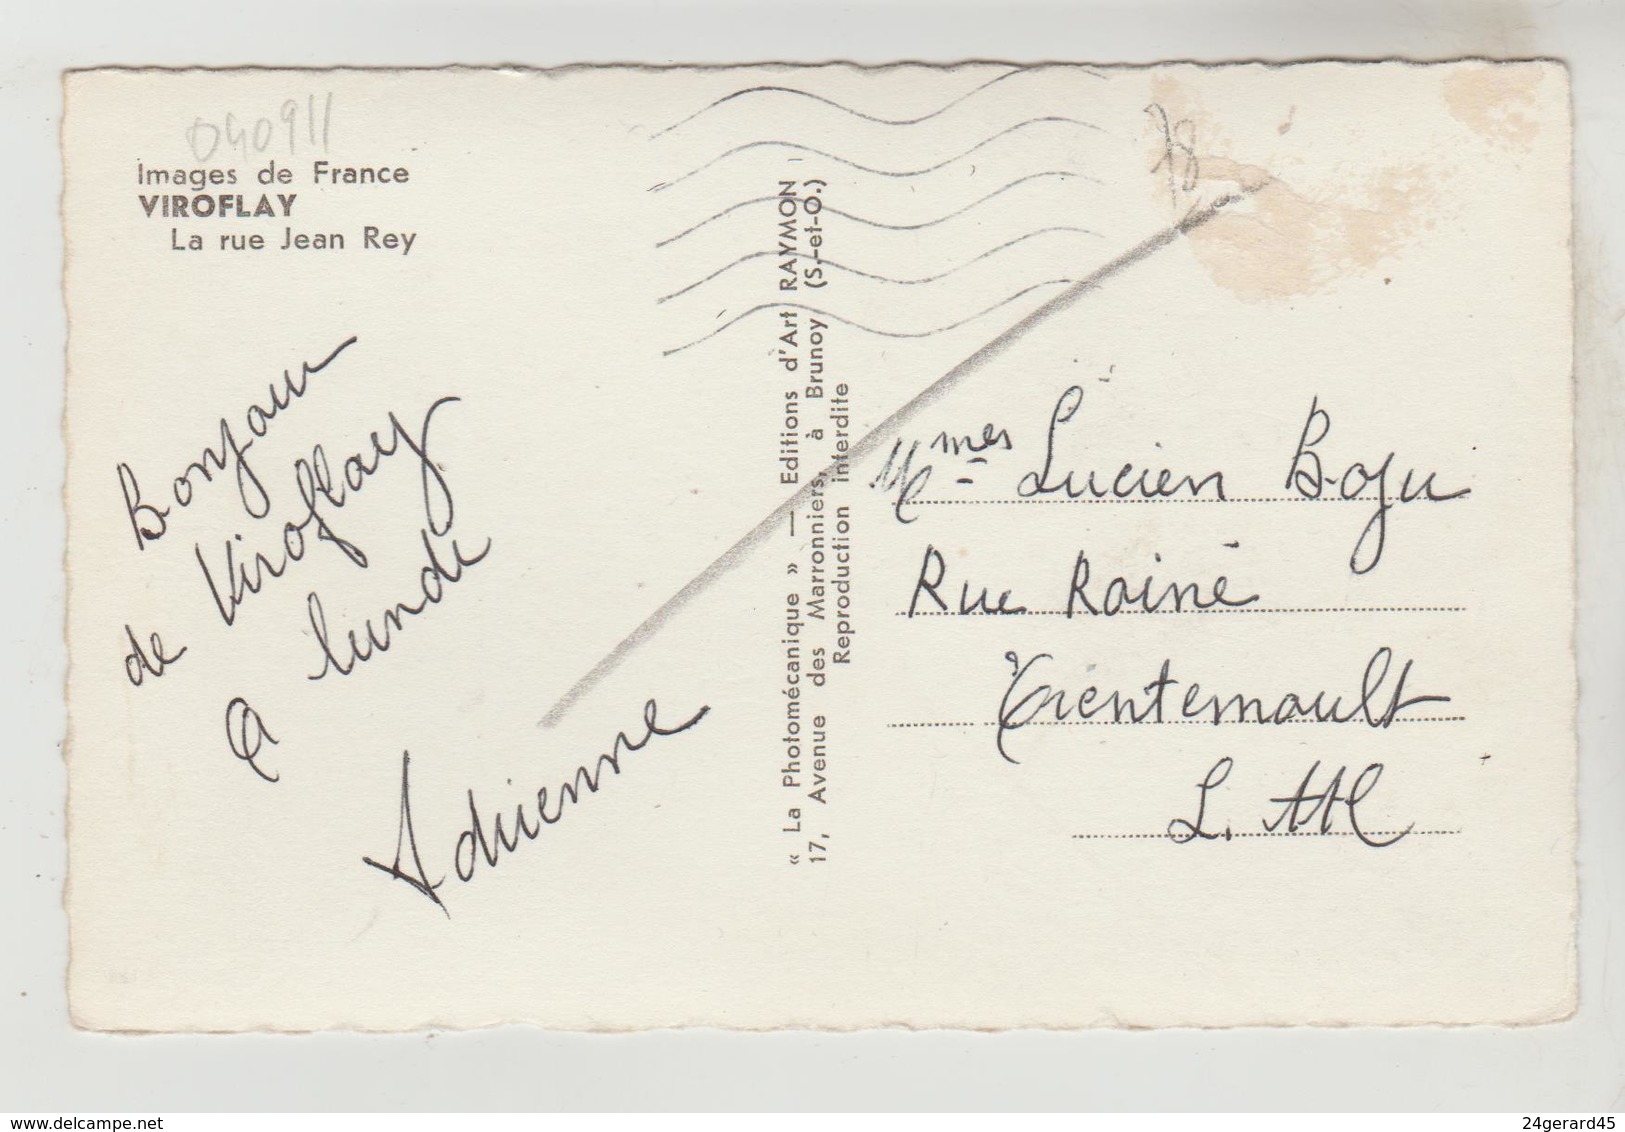 040911
Images de France
VIROFLAY
La rue Jean Rey
Bonjour
de Viroflay
A lundi
Adrienne
« La Photomécanique » — Editions d'Art RAYMON
17, Avenue des Marronniers, à Brunoy (S.-et-O.)
Reproduction interdite
78
Lucien Boju
Rue Rainé
Trentemoult
L.
www.delcampe.net
24gerard45